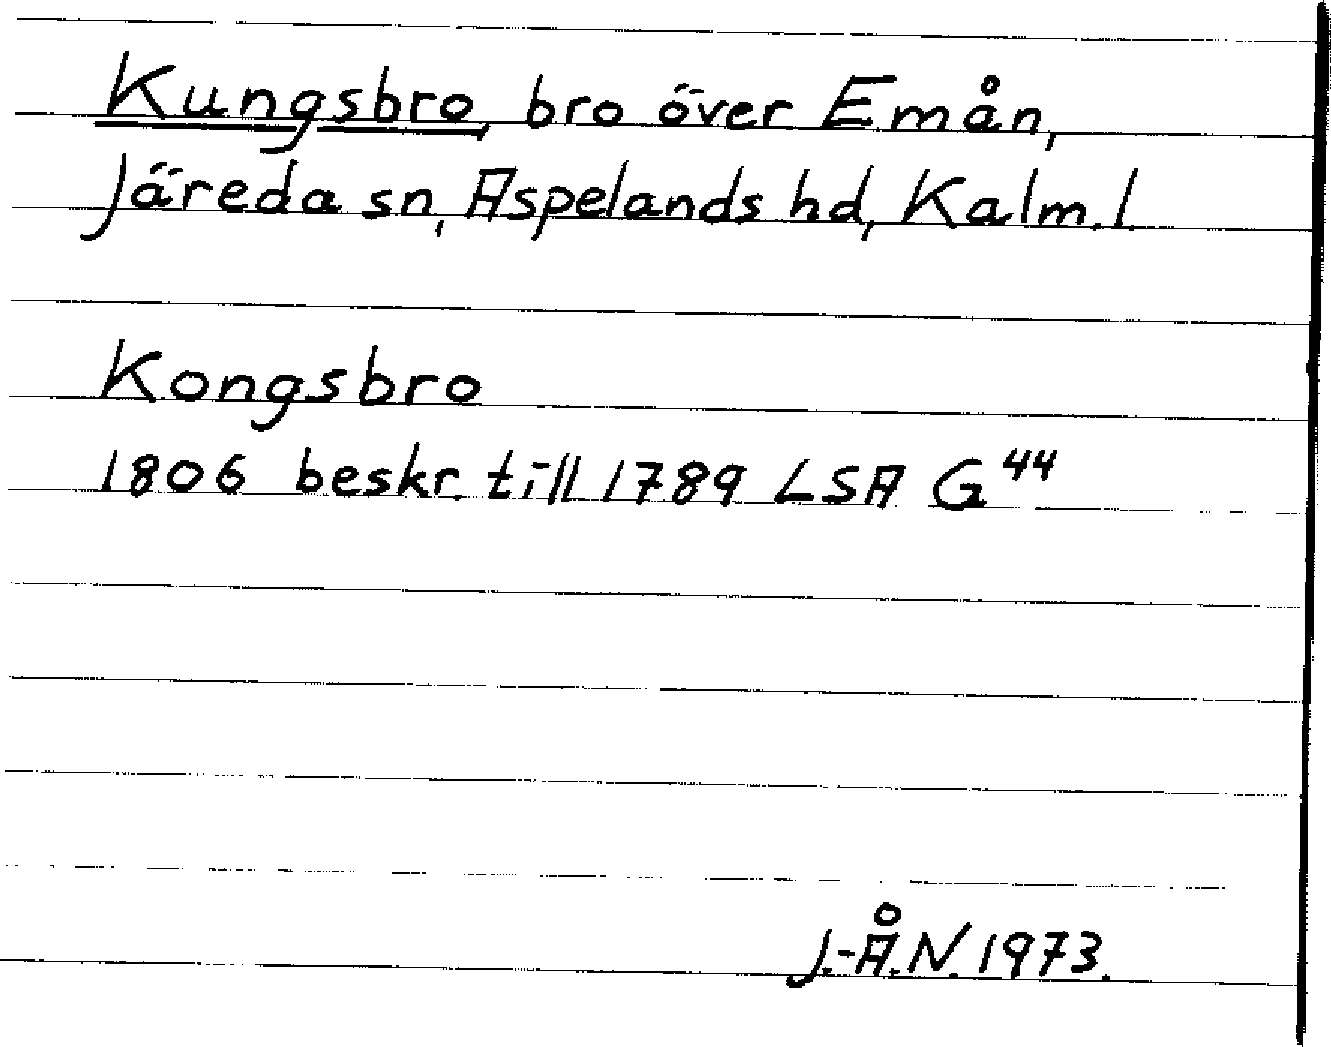 Kungsbro, bro över Emån,
Järeda sn, Aspelands hd, Kalm. l.
Kongsbro
1806 beskr. till 1789 LSA G 44
J.-Å.N. 1973.